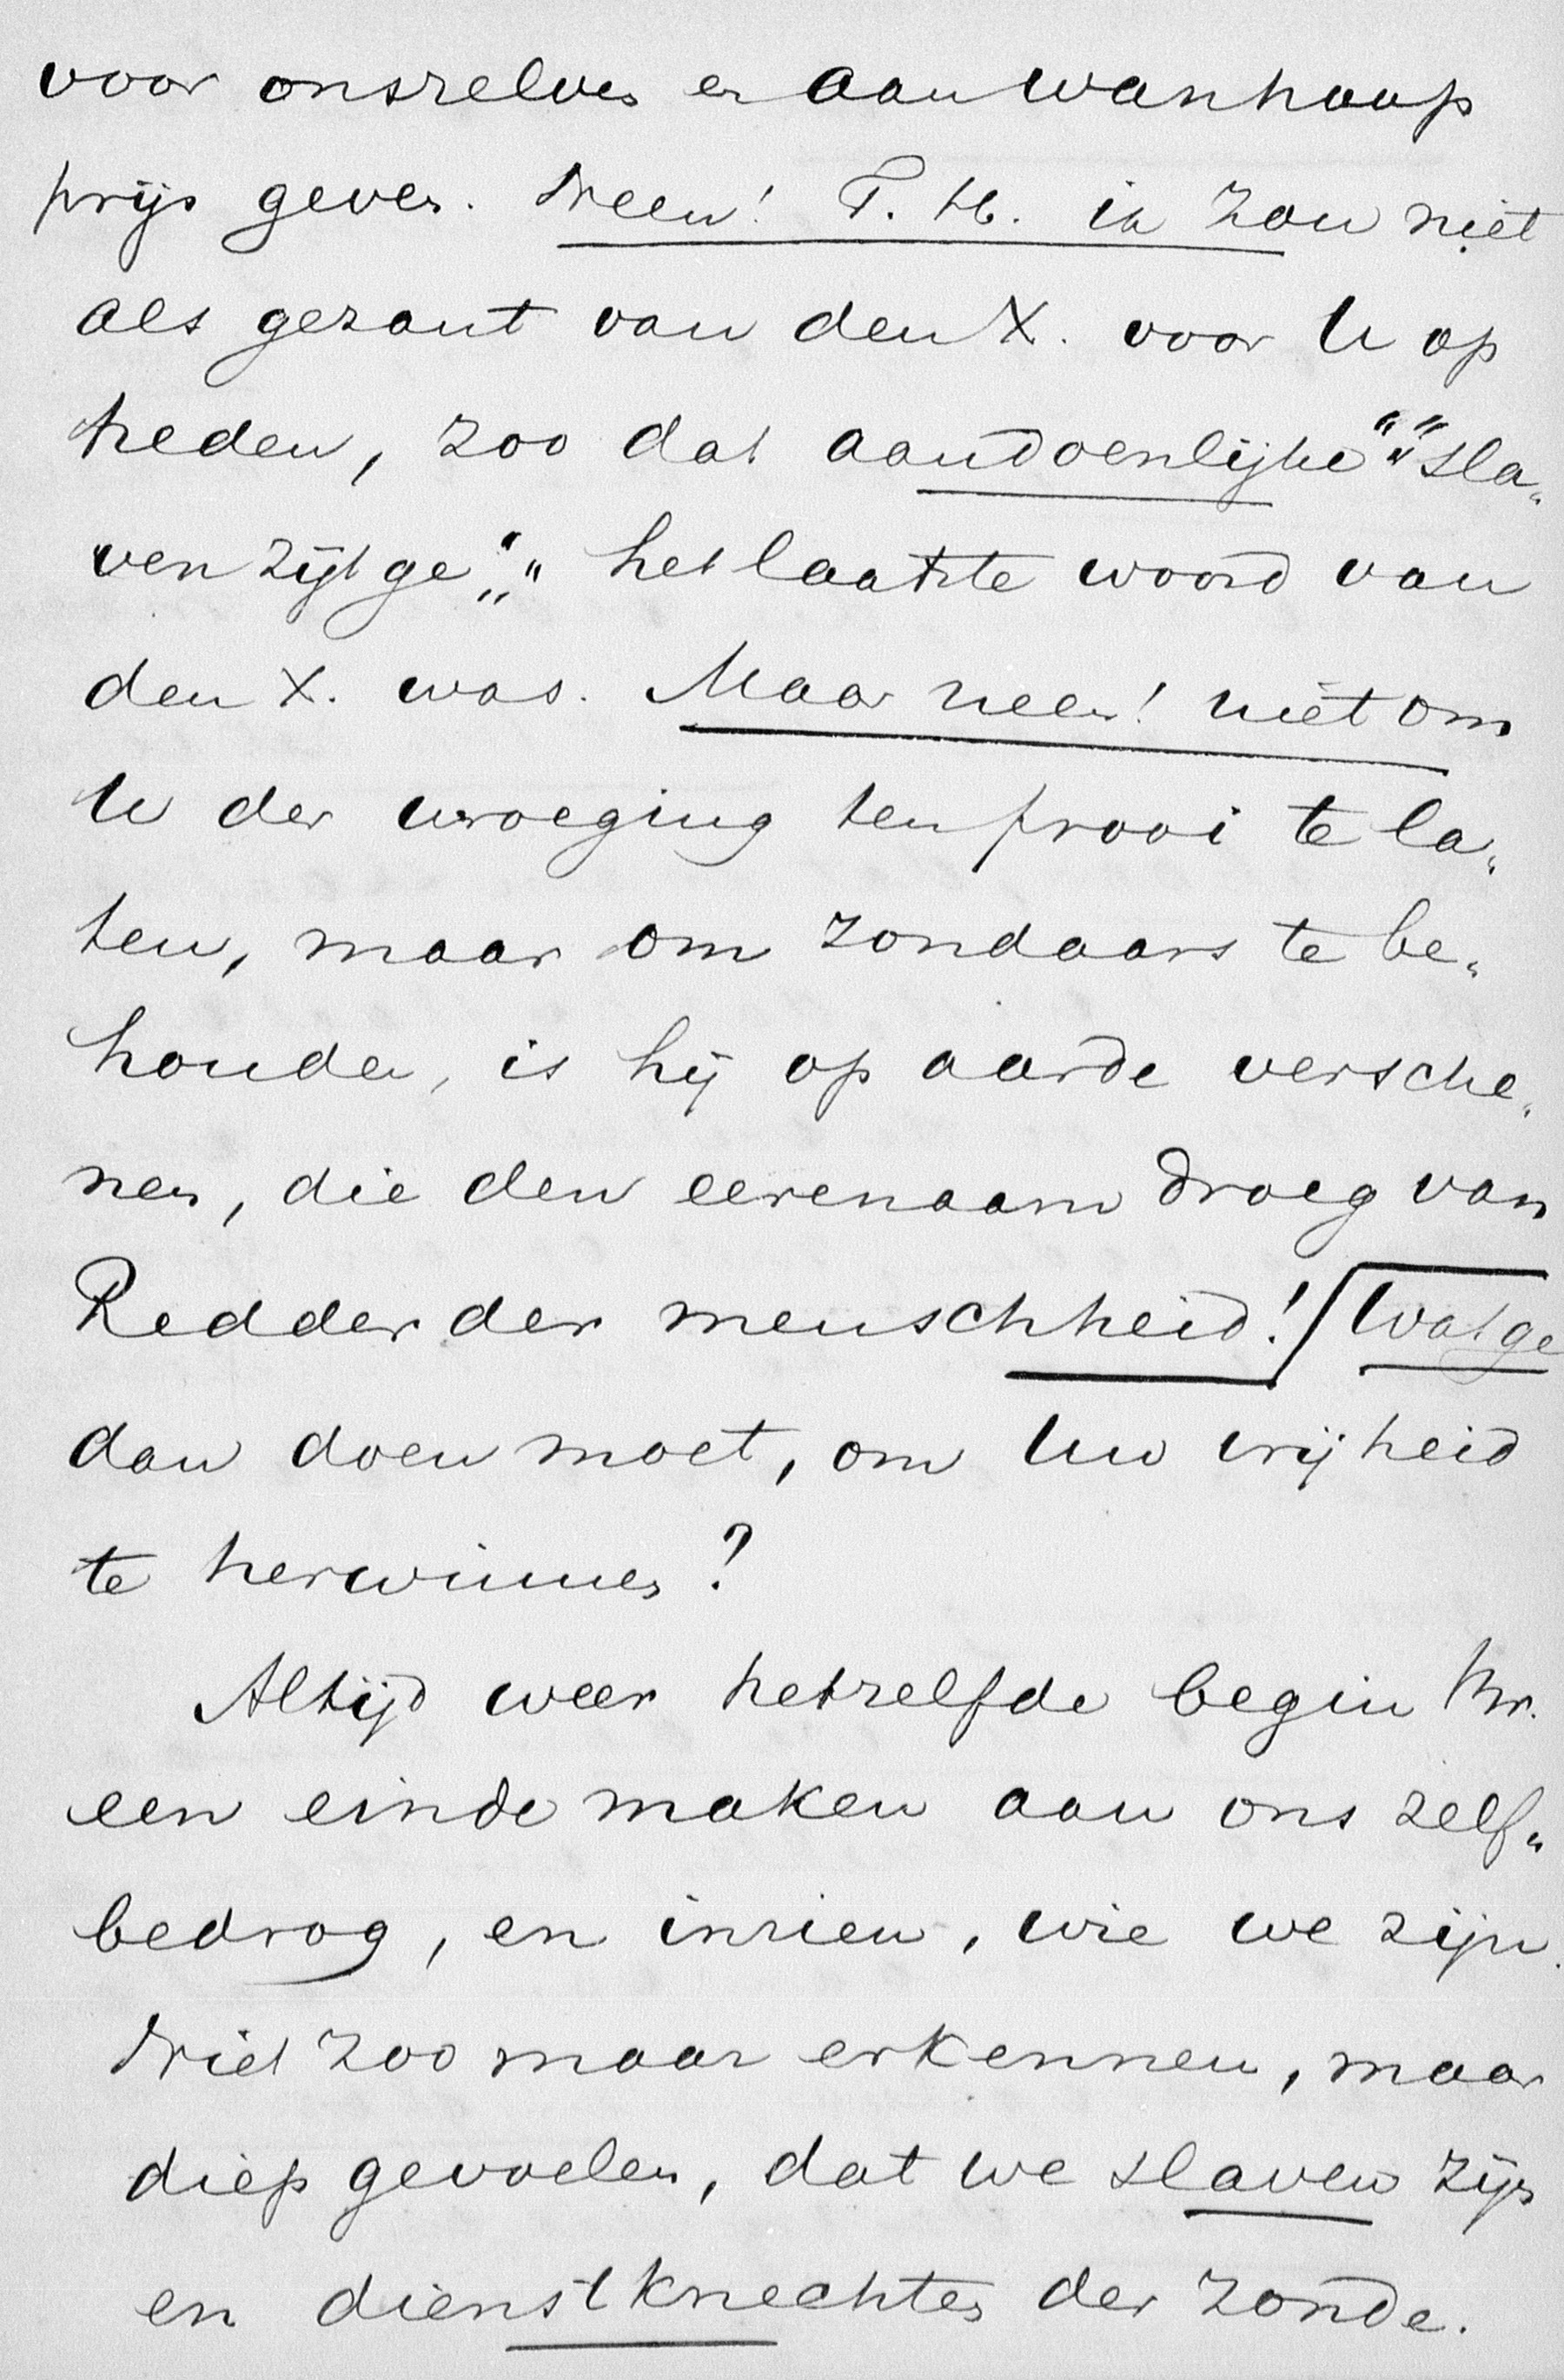 voor onszelven en aan wanhoop
prijs geven. Neen! T. H. ik zou niet
als gezant van den X. voor U op
treden, zoo dat aandoenlijke ""sla„
ven zijt ge"" het laatste woord van
den X. was. Maar neen! niet om
U der wroeging ten prooi te la„
ten, maar om zondaars te be„
houden, is hij op aarde versche„
nen, die den eerenaam droeg van
Redder der menschheid! / Wat ge
dan doen moet, om Uw vrijheid
te herwinnen?
Altijd weer hetzelfde begin Br.
een einde maken aan ons zelf„
bedrog, en inzien, wie we zijn.
Niet zoo maar erkennen, maar
diep gevoelen, dat we slaven zijn
en dienstknechten der zonde.